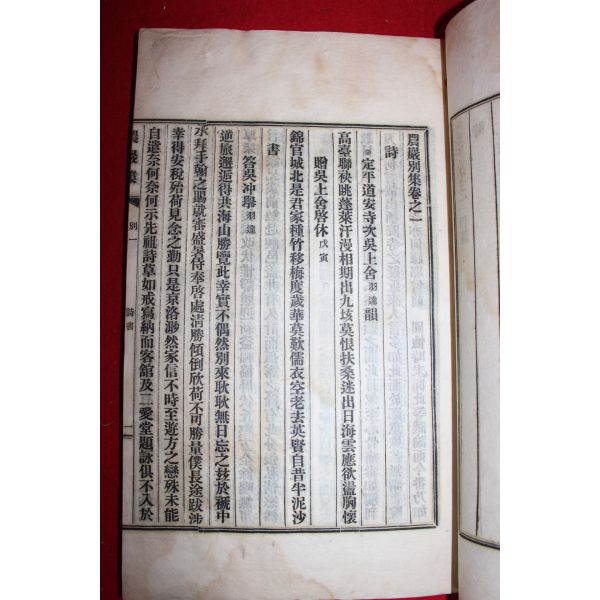 農巖別集卷之一
詩
定平道安寺次吳上舍羽逵韻
高臺聯袂眺蓬萊汗漫相期出九垓莫恨扶桑迷出日海雲應欲盪胸懷
贈吳上舍啓休戊寅
錦官城北是君家種竹移梅度歲華莫歎儒衣空老去英賢自昔半泥沙
書
答吳冲擧羽逵
逆旅邂逅得共海山勝覽此幸實不偶然別來耿耿無日忘之玆於褫中
承拜手翰之賜就審盛暑侍奉啓處淸勝傾倒欣荷不可勝量僕長途跋涉
幸得安稅殆荷見念之勤只是京洛渺然家信不時至遊方之戀殊未能
自遣奈何奈何示先祖詩草如戒寫納而客館及二愛堂題詠俱不入於
農巖集
別一
詩書